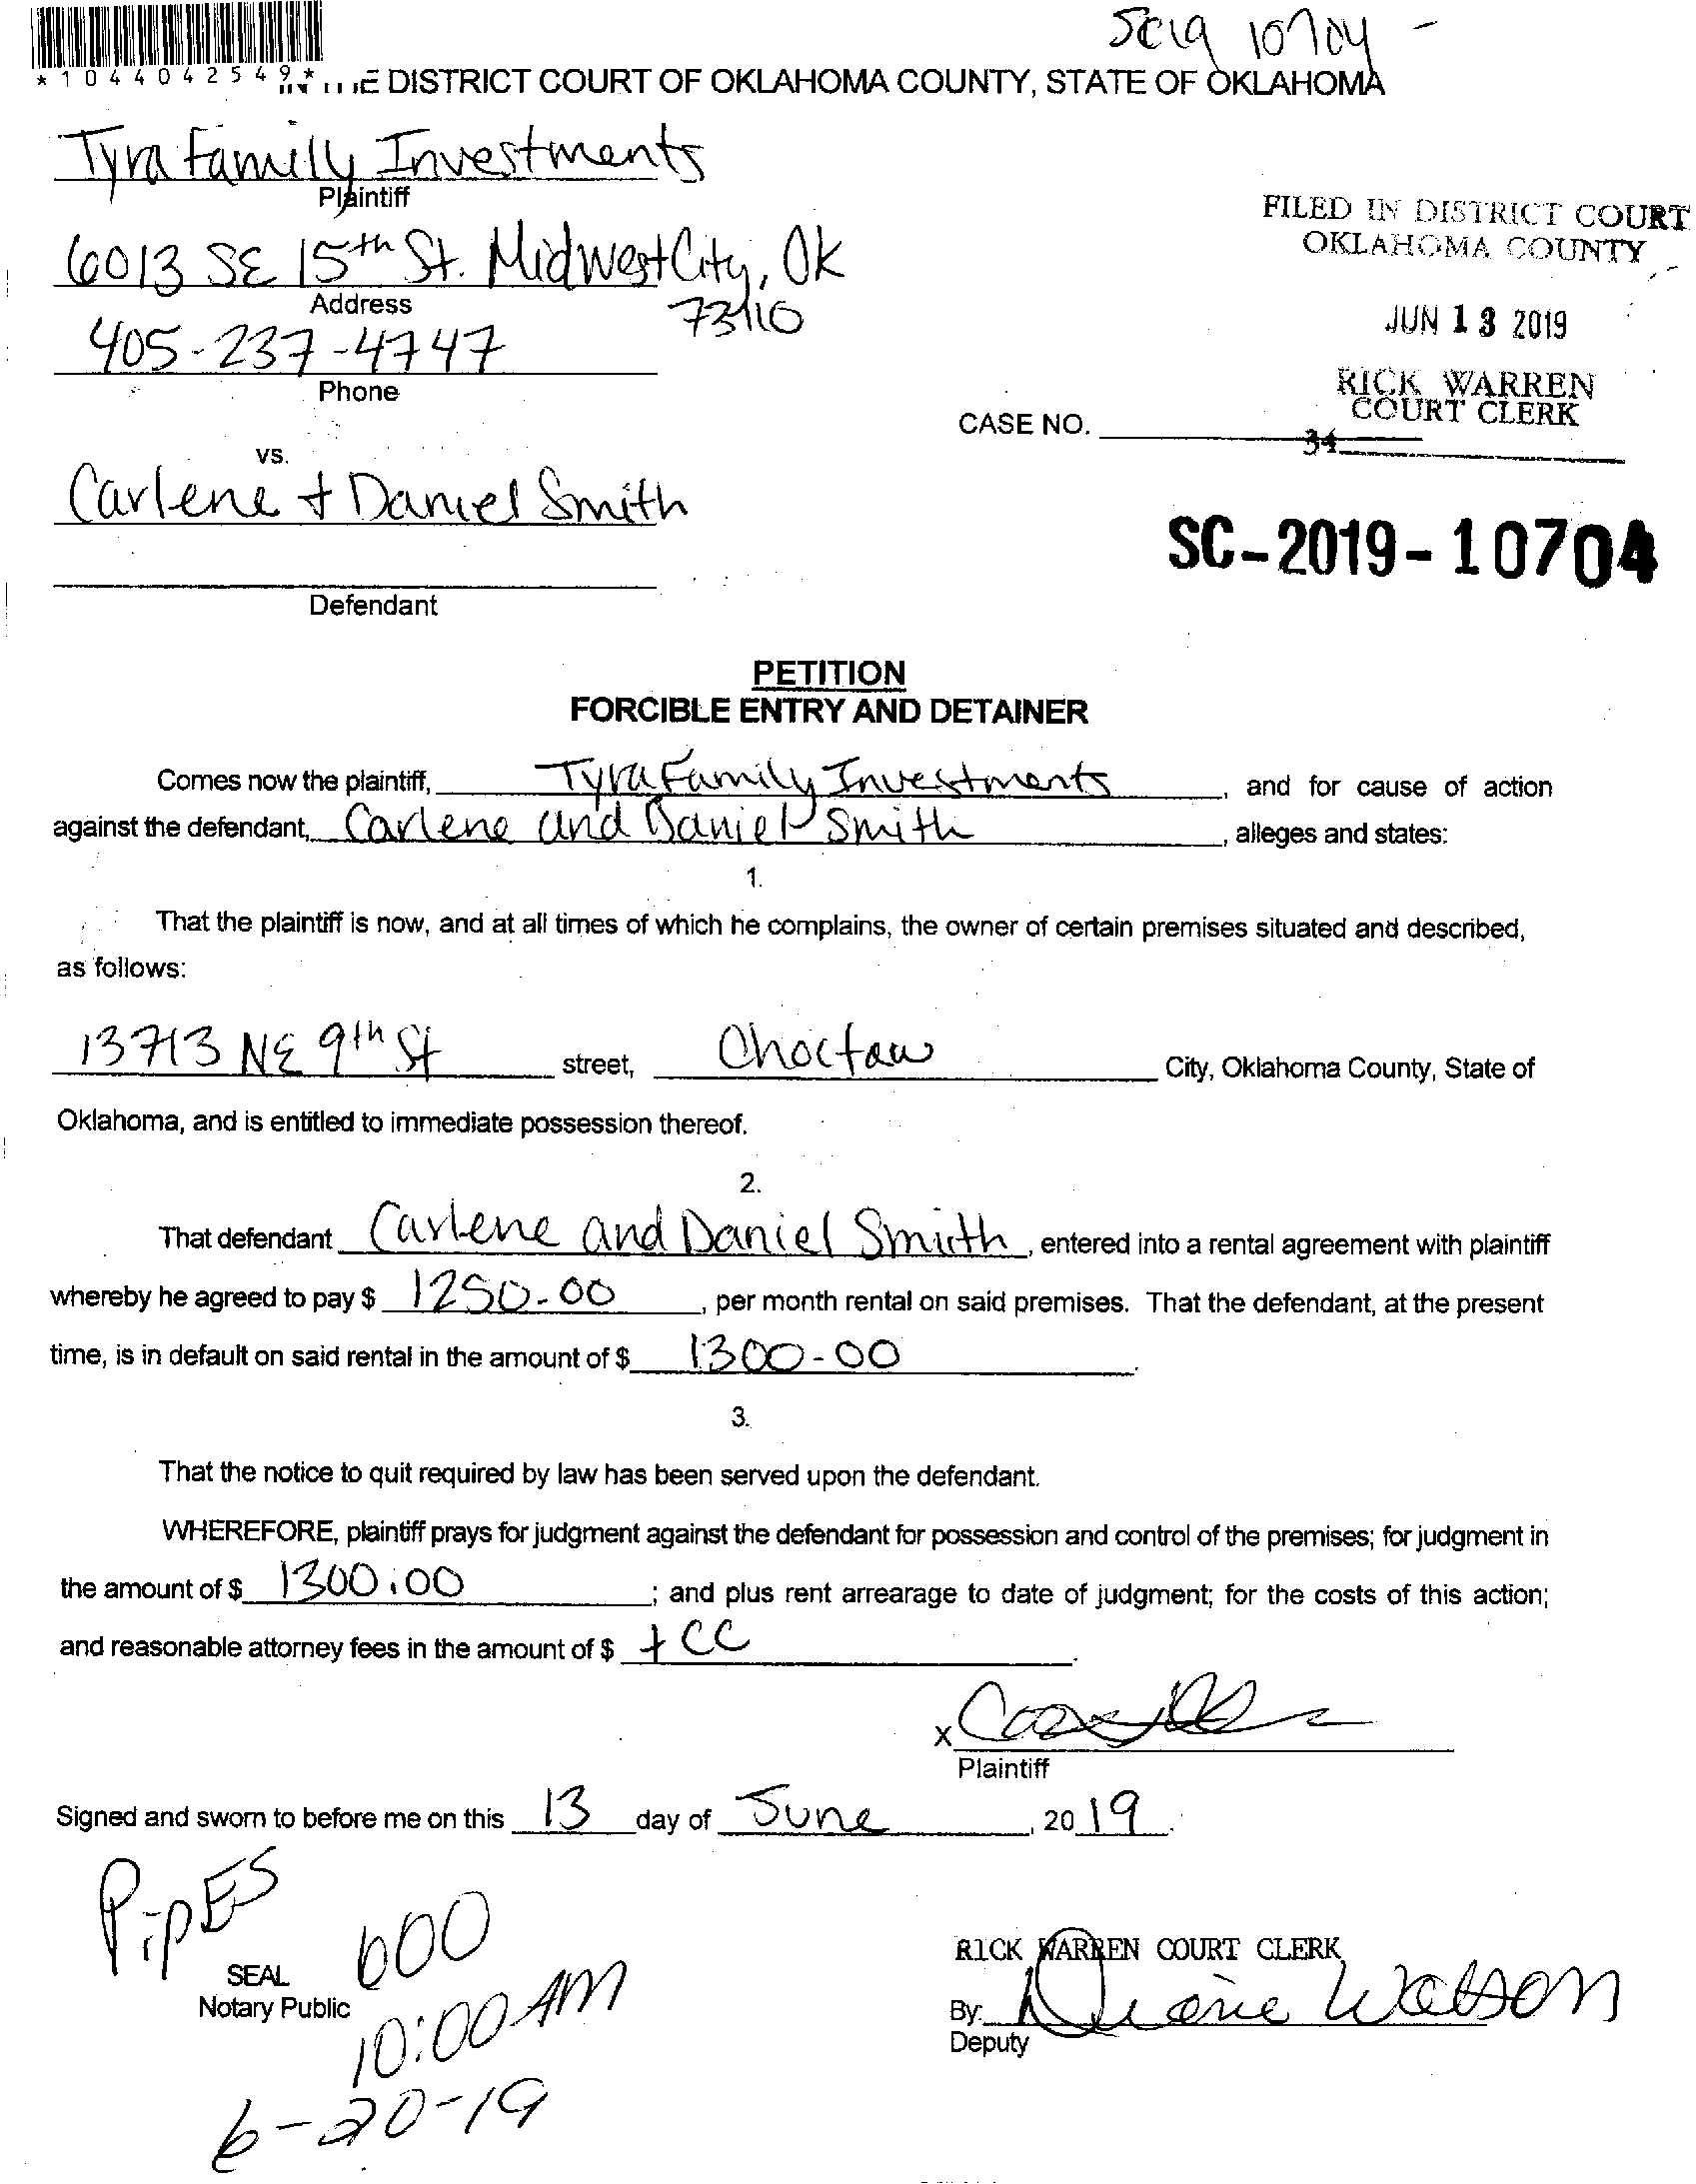 SC19 10704 -
*1044042549*
DISTRICT COURT OF OKLAHOMA COUNTY, STATE OF OKLAHOMA
Tyra Family Investments
Plaintiff
6013 SE 15th St. Midwest City, Ok
73110
Address
405-237-4747
Phone
FILED IN DISTRICT COURT
OKLAHOMA COUNTY
JUN 13 2019
RICK WARREN
COURT CLERK
34
CASE NO.
vs.
Carlene + Daniel Smith
Defendant
SC-2019-10704
PETITION
FORCIBLE ENTRY AND DETAINER
Comes now the plaintiff, Tyra Family Investments, and for cause of action
against the defendant, Carlene and Daniel Smith, alleges and states:
1.
That the plaintiff is now, and at all times of which he complains, the owner of certain premises situated and described,
as follows:
13713 NE 9th St street, Choctaw City, Oklahoma County, State of
Oklahoma, and is entitled to immediate possession thereof.
2.
That defendant Carlene and Daniel Smith, entered into a rental agreement with plaintiff
whereby he agreed to pay $ 1250-00, per month rental on said premises. That the defendant, at the present
time, is in default on said rental in the amount of $ 1300-00.
3.
That the notice to quit required by law has been served upon the defendant.
WHEREFORE, plaintiff prays for judgment against the defendant for possession and control of the premises; for judgment in
the amount of $ 1300.00; and plus rent arrearage to date of judgment; for the costs of this action;
and reasonable attorney fees in the amount of $ + CC.
X
Plaintiff
Signed and sworn to before me on this 13 day of June, 2019.
PipES
600
SEAL
Notary Public
10:00 AM
6-20-19
RICK WARREN COURT CLERK
By: Diane Watson
Deputy